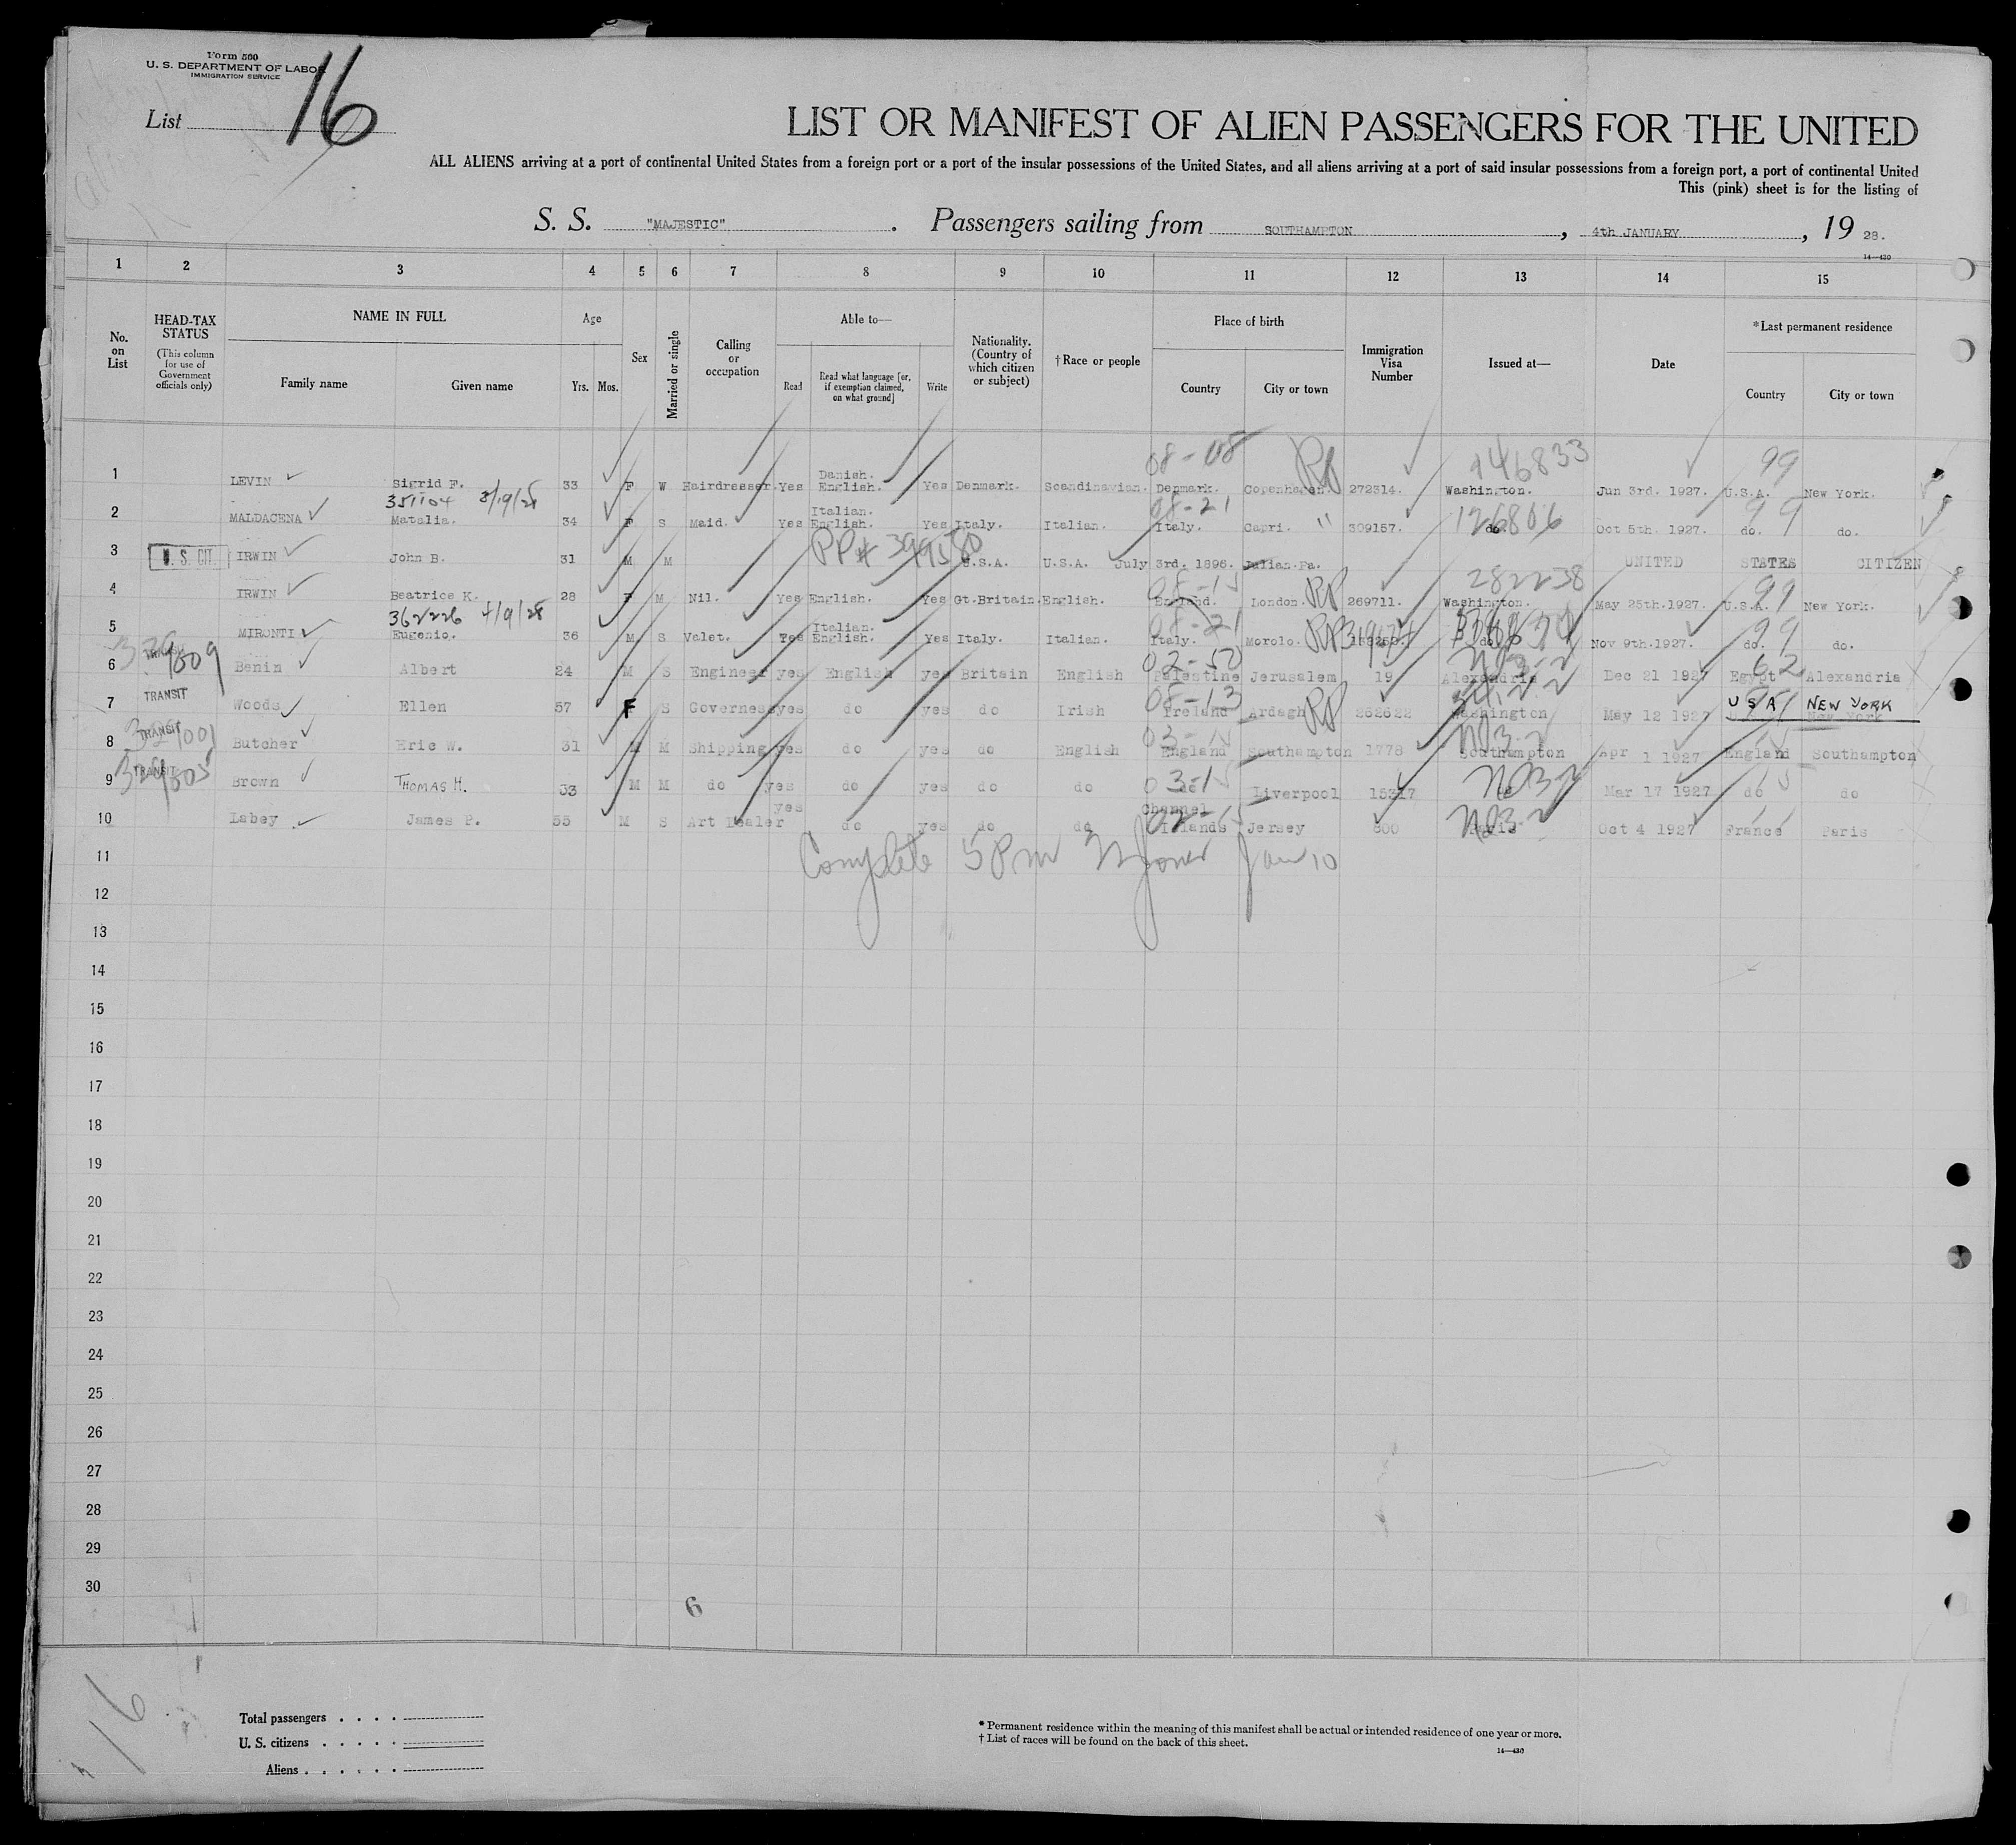 Form 500
U. S. DEPARTMENT OF LABOR
IMMIGRATION SERVICE
List 16
LIST OR MANIFEST OF ALIEN PASSENGERS FOR THE UNITED
ALL ALIENS arriving at a port of continental United States from a foreign port or a port of the insular possessions of the United States, and all aliens arriving at a port of said insular possessions from a foreign port, a port of continental United
This (pink) sheet is for the listing of
S. S. "MAJESTIC". Passengers sailing from SOUTHAMPTON, 4th JANUARY, 19 28.
14—430
1 2 3 4 5 6 7 8 9 10 11 12 13 14 15
No. on List
HEAD-TAX STATUS
(This column for use of Government officials only)
NAME IN FULL
Family name
Given name
Age
Yrs. Mos.
Sex
Married or single
Calling or occupation
Able to—
Read
Read what language [or, if exemption claimed, on what ground]
Write
Nationality. (Country of which citizen or subject)
†Race or people
Place of birth
Country
City or town
Immigration Visa Number
Issued at—
Date
*Last permanent residence
Country
City or town
08-08 RP 146833 99
1 LEVIN Sigrid F. 33 F W Hairdresser. Yes Danish. English. Yes Denmark. Scandinavian. Denmark. Copenhagen. 272314. Washington. Jun 3rd. 1927. U.S.A. New York.
351104 3/19/28
08-21 " 126806 99
2 MALDACENA Matalia. 34 F S Maid. Yes Italian. English. Yes Italy. Italian. Italy. Capri. 309157. do. Oct 5th. 1927. do. do.
PP# 399580
3 U. S. CIT. IRWIN John B. 31 M M U.S.A. U.S.A. July 3rd. 1896. Julian.Pa. UNITED STATES CITIZEN
08-15 RP 282238 99
4 IRWIN Beatrice K. 28 F M Nil. Yes English. Yes Gt.Britain. English. England. London. 269711. Washington. May 25th.1927. U.S.A. New York.
362226 4/9/28
08-21 RP 99
5 MIRONTI Eugenio. 36 M S Valet. Yes Italian. English. Yes Italy. Italian. Italy. Morolo. do. Nov 9th.1927. do. do.
02-50 ND3-2 62
6 TRANSIT Benin Albert 24 M S Engineer yes English yes Britain English Palestine Jerusalem 19 Alexandria Dec 21 1927 Egypt Alexandria
08-13 RP
7 TRANSIT Woods Ellen 57 F S Governess yes do yes do Irish Ireland Ardagh 262622 Washington May 12 1927 U S A NEW YORK
03-15 ND3-2 15
8 TRANSIT Butcher Eric W. 31 M M Shipping yes do yes do English England Southampton 1778 Southampton Apr 1 1927 England Southampton
03-15 ND3-2 15
9 TRANSIT Brown THOMAS H. 33 M M do yes do yes do do do Liverpool 15317 do Mar 17 1927 do do
02-15 ND3-2
10 Labey James P. 55 M S Art Dealer yes do yes do do Channel Islands Jersey 800 Paris Oct 4 1927 France Paris
11 Complete 5 Pm Jones Jan 10
12
13
14
15
16
17
18
19
20
21
22
23
24
25
26
27
28
29
30
6
16
Total passengers . . . .
U. S. citizens . . . . .
Aliens . . . . . .
* Permanent residence within the meaning of this manifest shall be actual or intended residence of one year or more.
† List of races will be found on the back of this sheet.
14—430